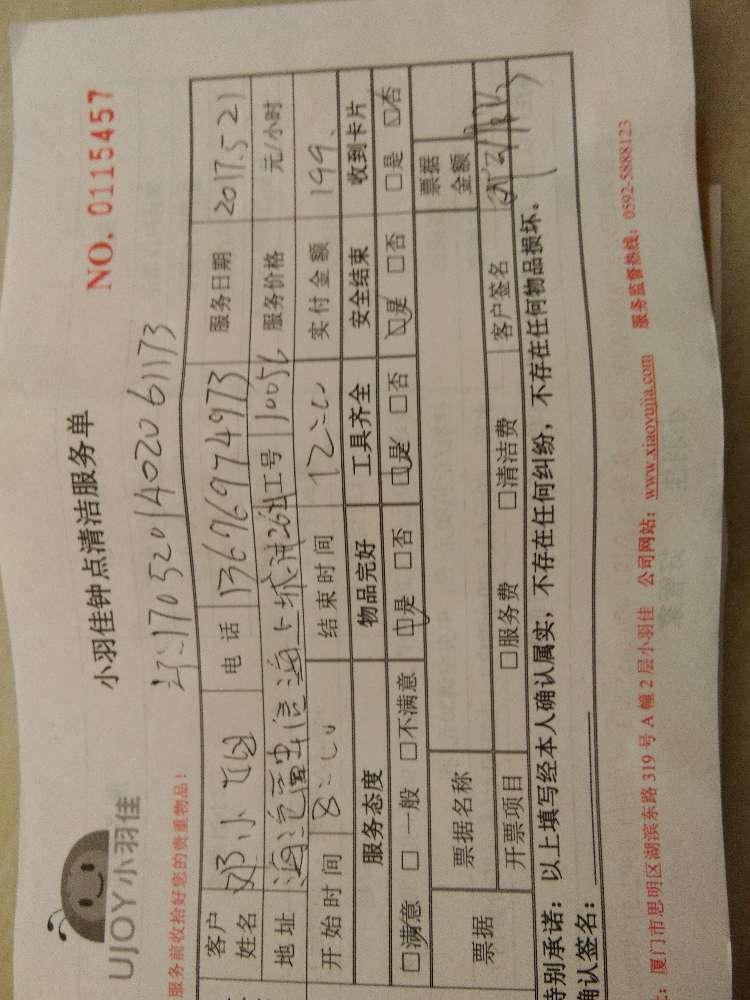 UJOY小羽佳
小羽佳钟点清洁服务单
NO. 0115457
服务前收拾好您的贵重物品!
170520140206 1173
客户姓名 邓小 电话 13696974973 服务日期 2017.5.21
地址 海沧 海上城 262 工号 10056 服务价格 元/小时
开始时间 8:00 结束时间 12:00 实付金额 199.
服务态度 物品完好 工具齐全 安全结束 收到卡片
□满意 □一般 □不满意 □是 □否 □是 □否 □是 □否 □是 □否
票据 票据名称 票据金额
开票项目 □服务费 □清洁费 客户签名
特别承诺: 以上填写经本人确认属实,不存在任何纠纷,不存在任何物品损坏。
确认签名:
: 厦门市思明区湖滨东路 319 号 A 幢 2 层小羽佳 公司网站: www.xiaoyujia.com 服务监督热线: 0592-5888123